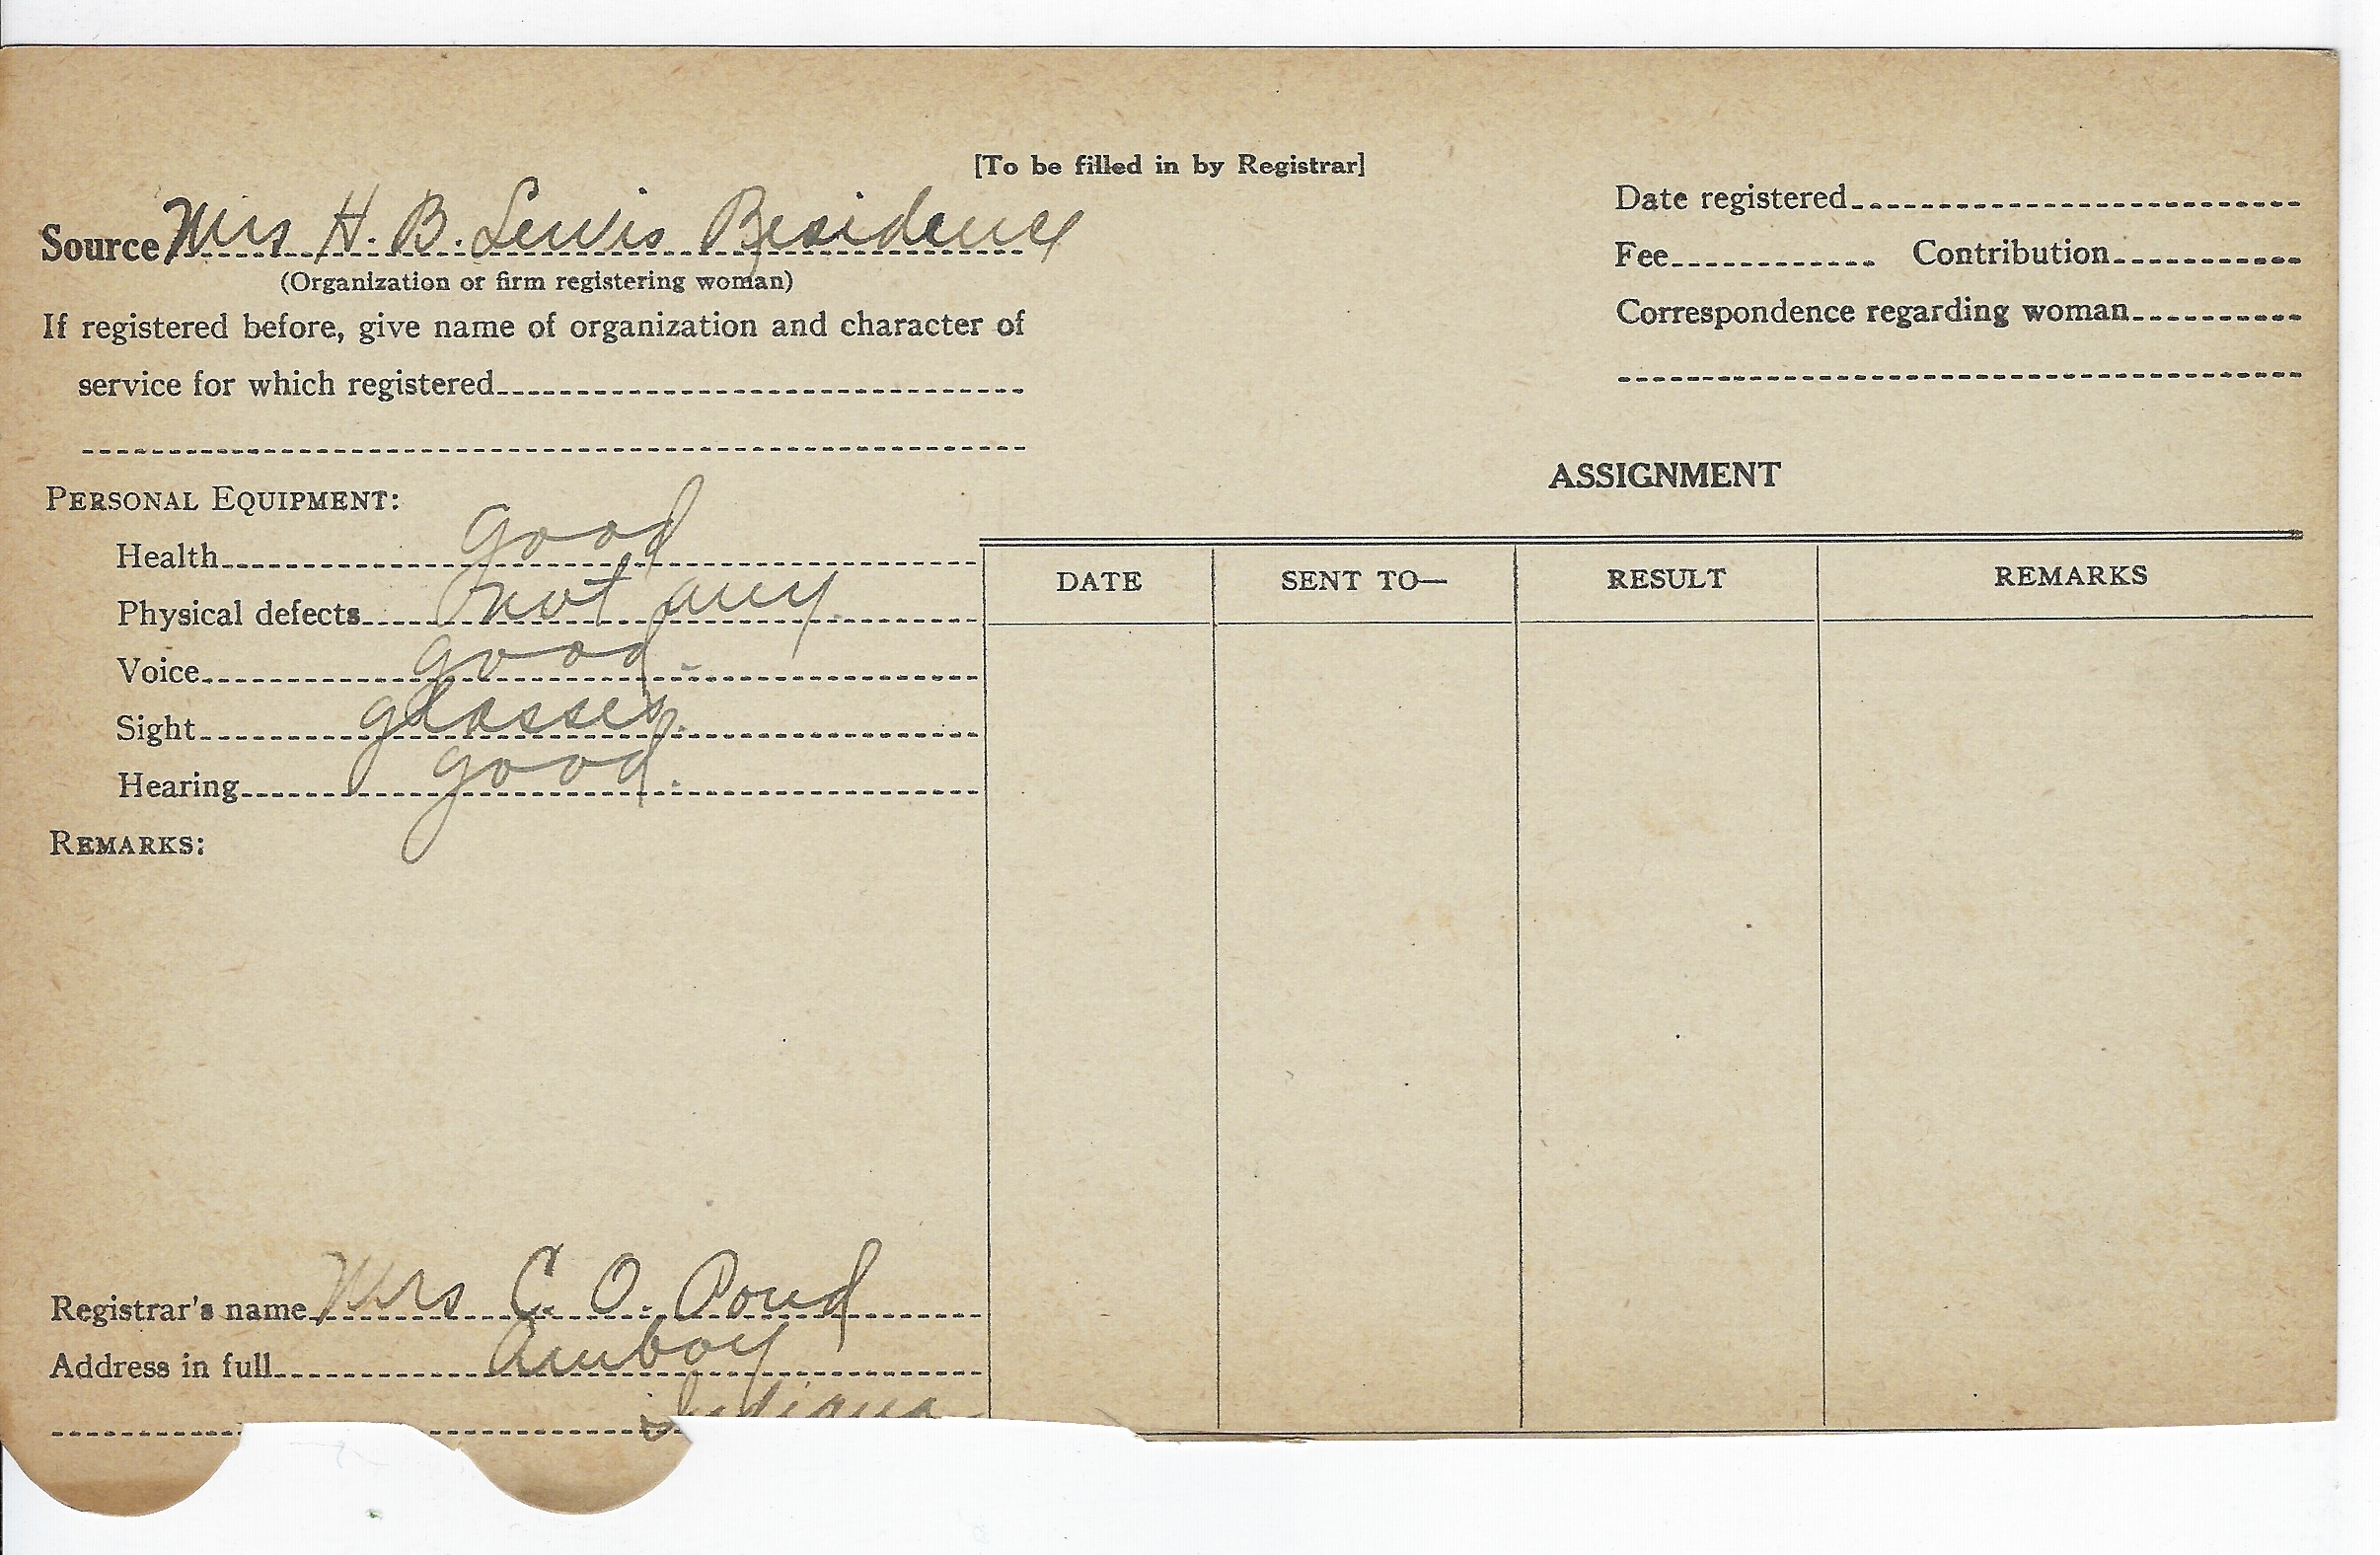 [To be filled in by Registrar]
Source Mrs H. B. Lewis Residence
(Organization or firm registering woman)
If registered before, give name of organization and character of
service for which registered
Date registered
Fee Contribution
Correspondence regarding woman
PERSONAL EQUIPMENT:
Health good
Physical defects not any.
Voice good.
Sight glasses.
Hearing good.
REMARKS:
Registrar's name Mrs C. O. Pond
Address in full Amboy
Indiana
ASSIGNMENT
DATE SENT TO— RESULT REMARKS